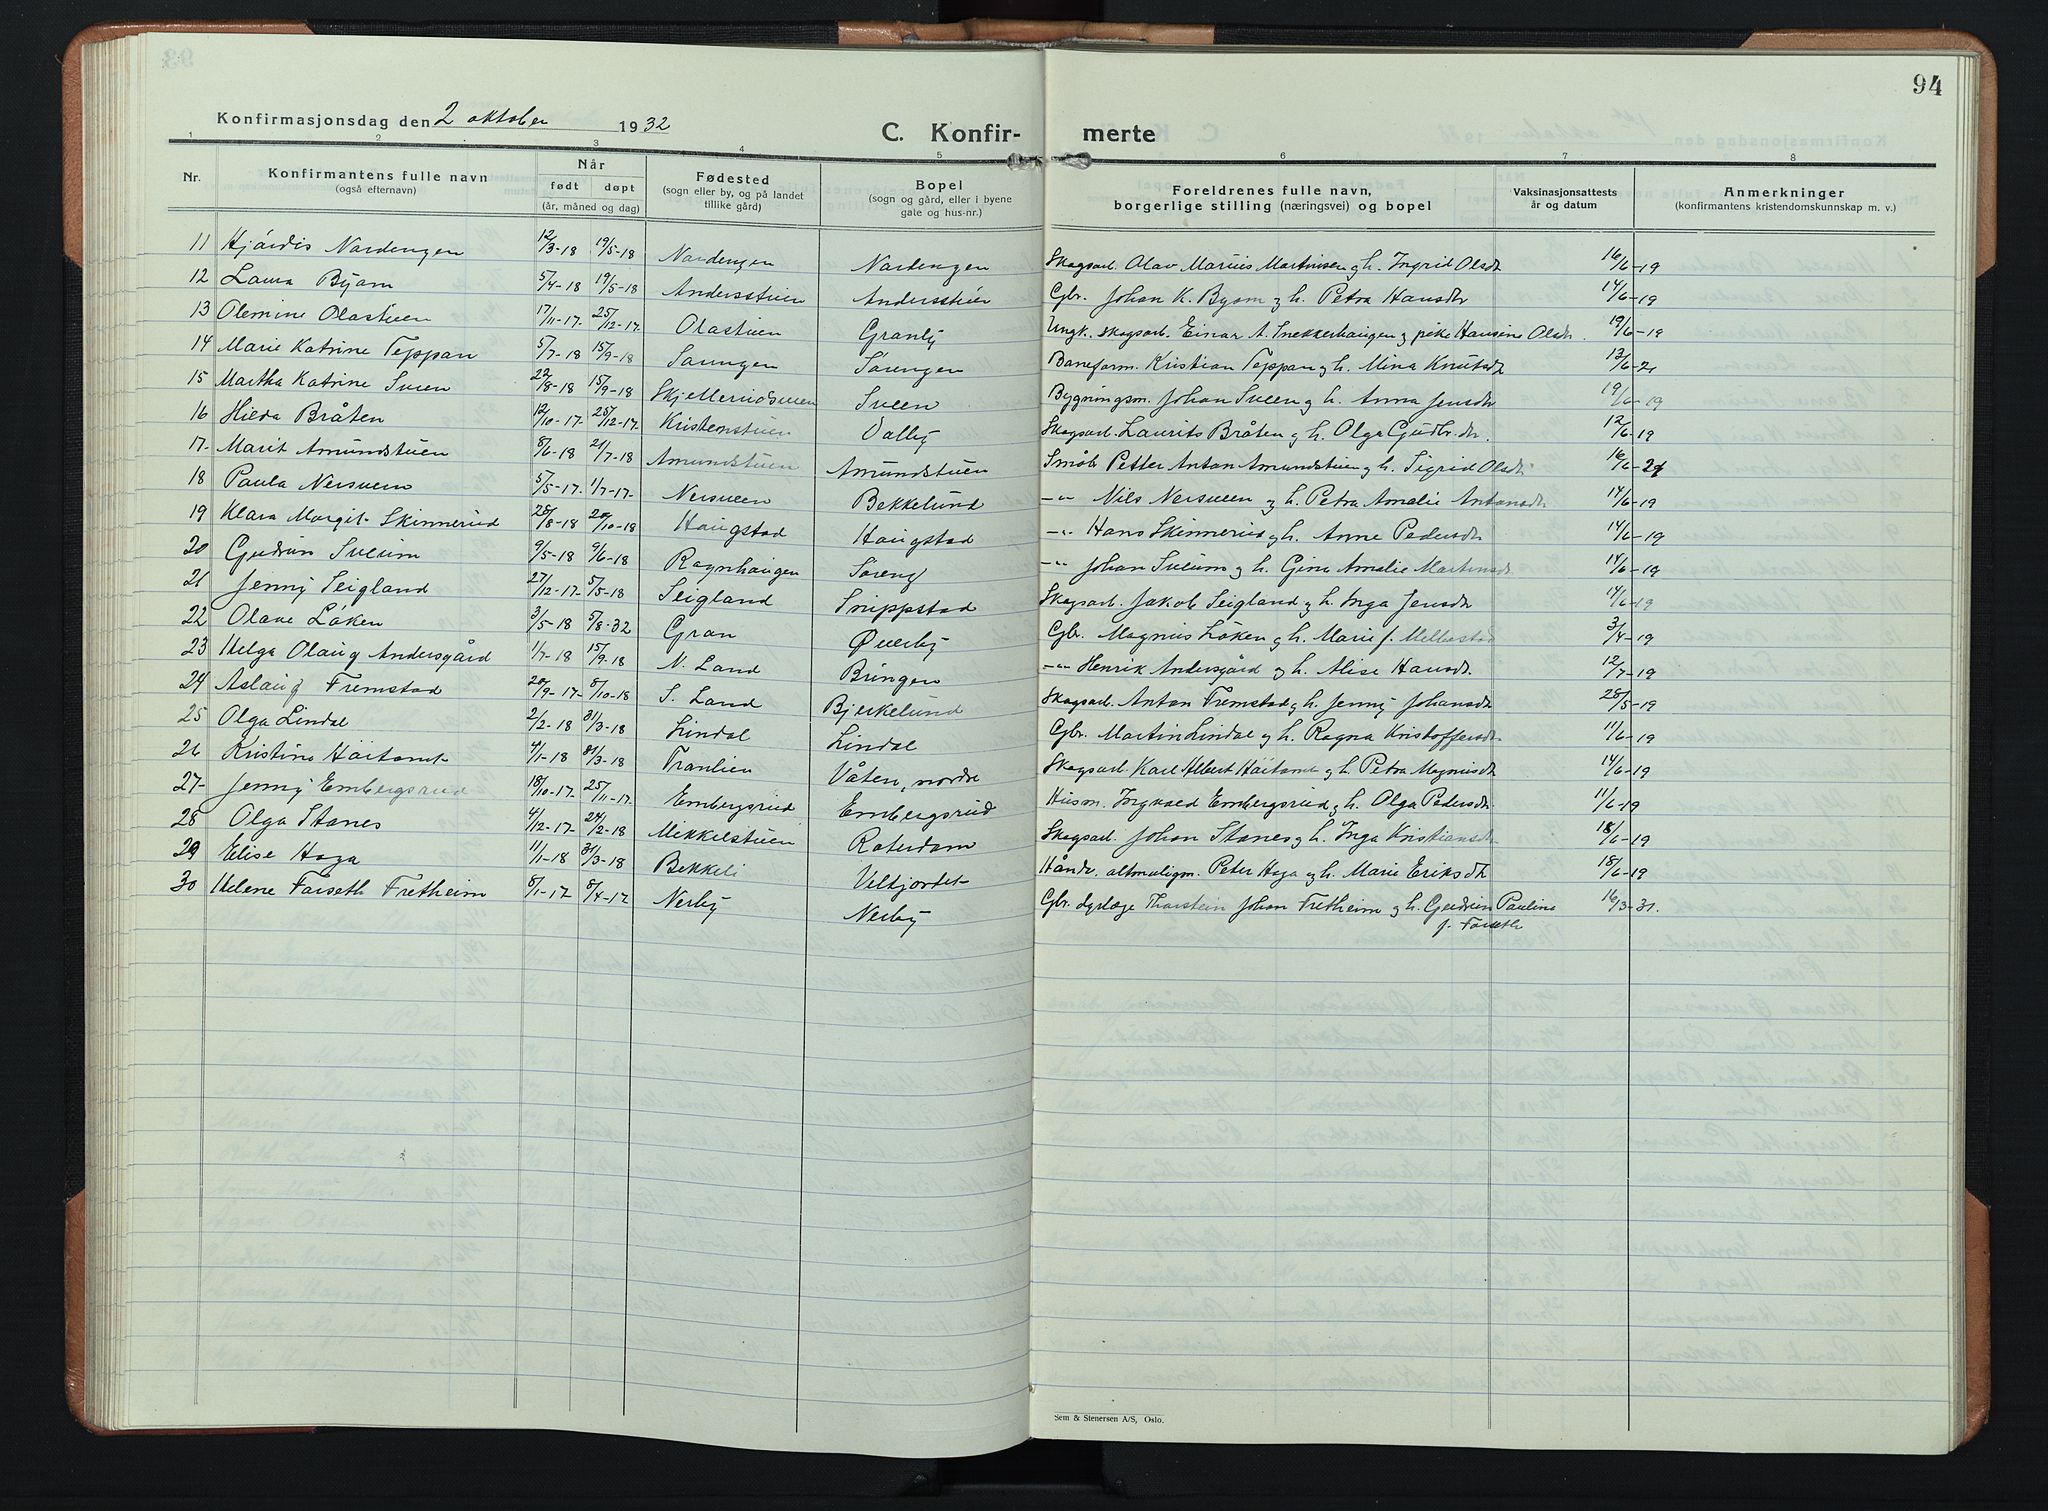 94
Konfirmasjonsdag den 2 oktober 1932
C. Konfir- merte
1 2 3 4 5 6 7 8
Nr.
Konfirmantens fulle navn
(også efternavn)
Når
født døpt
(år, måned og dag)
Fødested
(sogn eller by, og på landet
tillike gård)
Bopel
(sogn og gård, eller i byene
gate og hus-nr.)
Foreldrenes fulle navn,
borgerlige stilling (næringsvei) og bopel
Vaksinasjonsattests
år og datum
Anmerkninger
(konfirmantens kristendomskunnskap m. v.)
11 Hjördis Nordengen 12/3-18 19/5-18 Nordengen Nordengen Skogsarb. Olav Marius Martinsen g h. Ingrid Olsdtr 16/6-19
12 Laura Byom 5/4-18 19/5-18 Andersstuen Andersstuen Gbr. Johan K. Byom g h. Petra Hansdtr 14/6-19
13 Olemine Olastuen 17/11-17. 25/12-17. Olastuen Granly Ungk. skogsarb. Einar A. Snekkerhaugen g pike Hansine Olsdtr. 19/6-19
14 Marie Katrine Teppan 5/7-18 15/9-18 Sørengen Sørengen Baneform. Kristian Teppan g h. Mina Knutsdtr 13/6-21
15 Martha Katrine Sveen 22/8-18 15/9-18 Skjellerudsveen Sveen Bygningsm. Johan Sveen g h. Anna Jensdtr 19/6-19
16 Hilda Bråten 12/10-17. 25/12-17. Kristenstuen Dalby Skogsarb. Laurits Bråten g h. Olga Gudbr.dtr. 12/6-19
17. Marit Amundstuen 8/6-18 21/7-18 Amundstuen Amundstuen Småb. Petter Anton Amundstuen g h. Sigrid Olsdtr 16/6-21
18 Paula Nersveen 5/5-17. 1/7-17. Nersveen Bekkelund -"- Nils Nersveen g h. Petra Amalie Antonsdtr 14/6-19
19 Klara Margit Skinnerud 25/8-18 20/10-18 Haugstad Haugstad -"- Hans Skinnerud g h. Anne Pedersdtr 14/6-19
20 Gudrun Sveum 9/5-18 9/6-18 Ragnhaugen Søreng -"- Johan Sveum g h. Gina Amalie Martinsdtr. 14/6-19
21 Jenny Seigland 27/12-17. 5/5-18 Seigland Snippstad Skogsarb. Jakob Seigland g h. Inga Jensdtr 14/6-19
22 Olave Löken 3/5-18 5/8-32 Gran Øverby Gbr. Magnus Löken g h. Marie f. Mellestad 3/4-19
23 Helga Olaug Andersgård 1/7-18 15/9-18 N. Land Bringen -"- Henrik Andersgård g h. Alise Hansdtr. 12/7-19
24 Aslaug Fremstad 20/9-17. 8/10-18 S. Land Bjerkelund Skogsarb. Anton Fremstad g h. Jenny Johansdtr 28/5-19
25 Olga Lindal 2/2-18 31/3-18 Lindal Lindal Gbr. Martin Lindal g h. Ragna Kristoffersdtr 11/6-19
26 Kristine Höitomt 4/1-18 31/3-18 Tranlien Våten, nordre Skogsarb. Karl Albert Höitomt g h. Petra Magnusdtr 14/6-19
27- Jenny Embergsrud 18/10-17. 25/11-17. Embergsrud Embergsrud Husm. Ingvald Embergsrud g h. Olga Pedersdtr 11/6-19
28 Olga Stanes 4/12-17- 24/2-18 Mikkelstuen Roterdam Skogsarb. Johan Stanes g h. Inga Kristiansdtr 18/6-19
29 Elise Haga 11/1-18 31/3-18 Bekkeli Velkjordet Håndv. altmuligm. Peter Haga g h. Marie Eriksdtr 18/6-19
30 Helene Farseth Fretheim 8/1-17 8/4-17 Nerby Nerby Gbr. dyrlæge Thorstein Johan Fretheim g h. Gudrun Pauline 16/3-31.
f. Farseth
Sem & Stenersen A/S, Oslo.